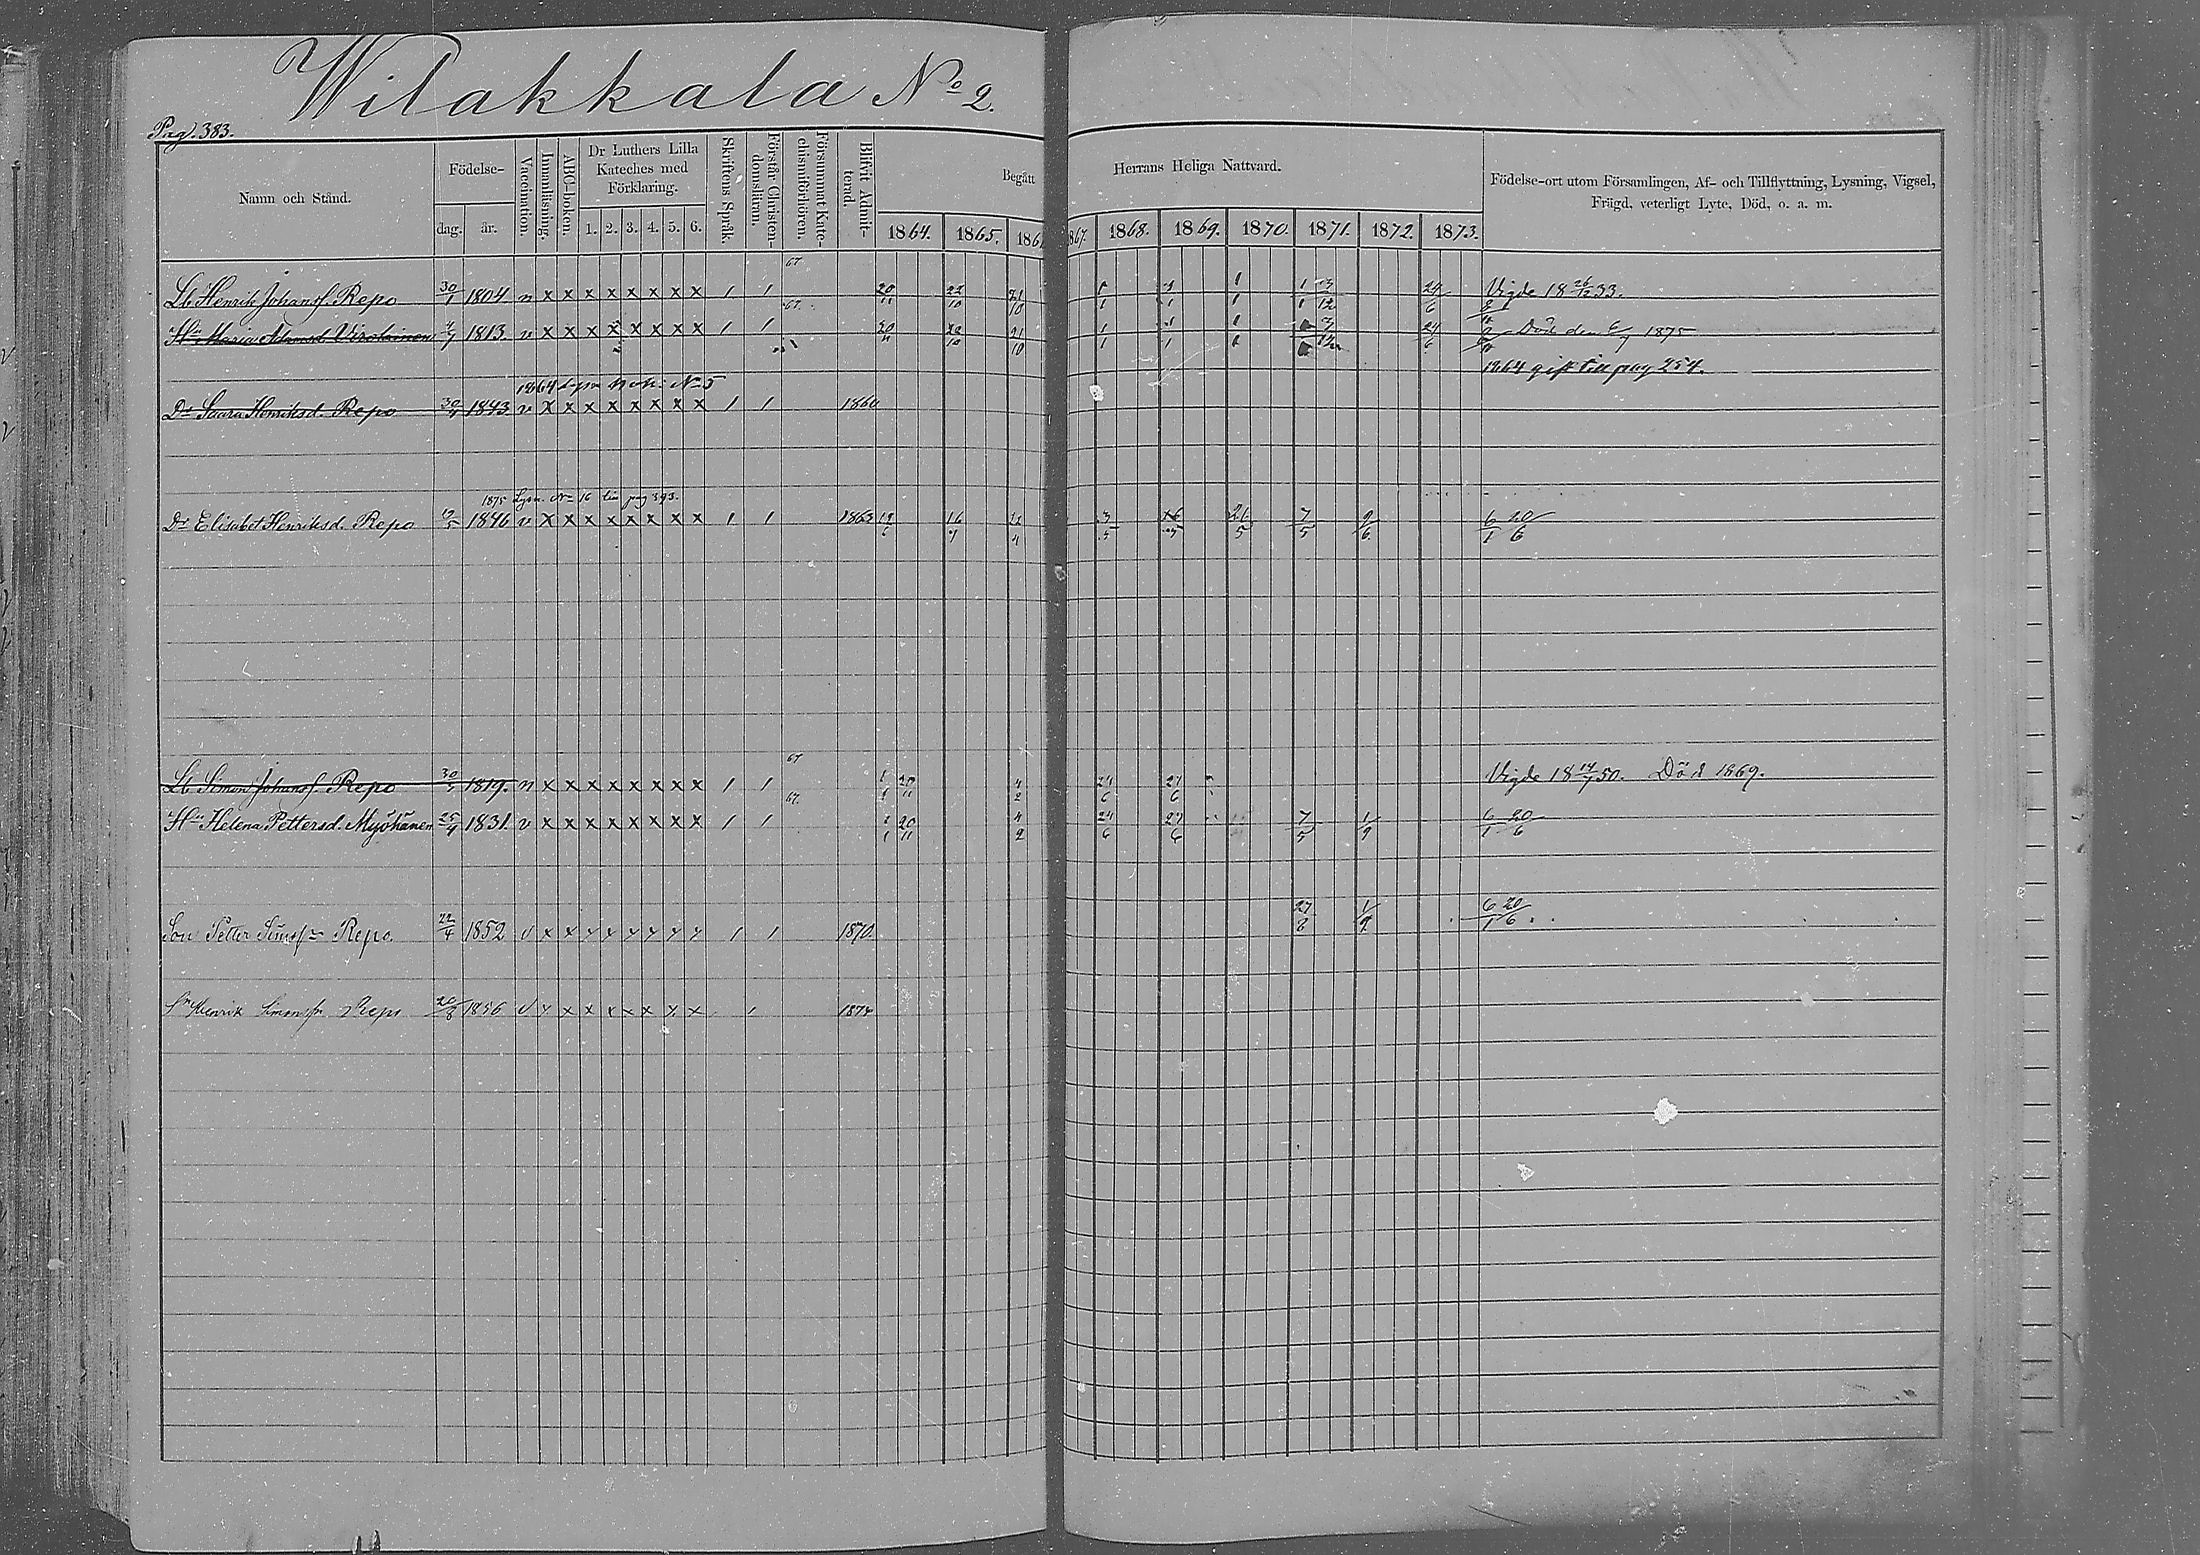 Wilakkala No 2.
Pag. 383.
Namn och Stånd.
Födelse-
dag. år.
Vaccination.
Innanläsning.
ABC-boken.
Dr Luthers Lilla
Kateches med
Förklaring.
1. 2. 3. 4. 5. 6.
Skriftens Språk.
Förstår Christen-
domsläran.
Försummat Kate-
chismiförhören.
Blifvit Admit-
terad.
Begått Herrans Heliga Nattvard.
1864. 1865. 186 1867. 1868. 1869. 1870. 1871. 1872. 1873.
Födelse-ort utom Församlingen, Af- och Tillflyttning, Lysning, Vigsel,
Frägd, veterligt Lyte, Död, o. a. m.
67
Lb Henrik Johans. Repo 30/1 1804 v x x x x x x x x 1 1 20/11 22/10 21/10 1/1 1/1 1/1 24/6 Vigde 18 26/12 33.
67.
Hu Maria Adamsd. Virolainen 1813. v x x x x x x x x 1 1 20/11 22/10 21/10 1/1 1/1 24/6 Död den 1875
1864 gift till pag 254.
1864 Lysn No 5
Dr Saara Henriksd. Repo 1843 v x x x x x x x x 1 1 1860
1875 Lysn. No 16 till pag 393.
Dr Elisabet Henriksd. Repo 1846 v x x x x x x x x 1 1 1863 3/5 21/5 7/5 9/6 6/1 20/6
67
Lb Simon Johans. Repo 1819. v x x x x x x x x 1 1 1/1 20/11 4/2 24/6 27/6 Vigde 18 14/7 50. Död 1869.
67.
Hu Helena Pettersd. Myöhänen 25/4 1831. v x x x x x x x x 1 1 1/1 20/11 4/2 24/6 27/6 7/5 1/9 6/1 20/6
Son Petter Simss. Repo. 22/4 1852 v x x x x x x x x 1 1 1870. 1/9 6/1 20/6
Sn Henrik Simonss. Repo 20/8 1856 v x x x x x x x x 1